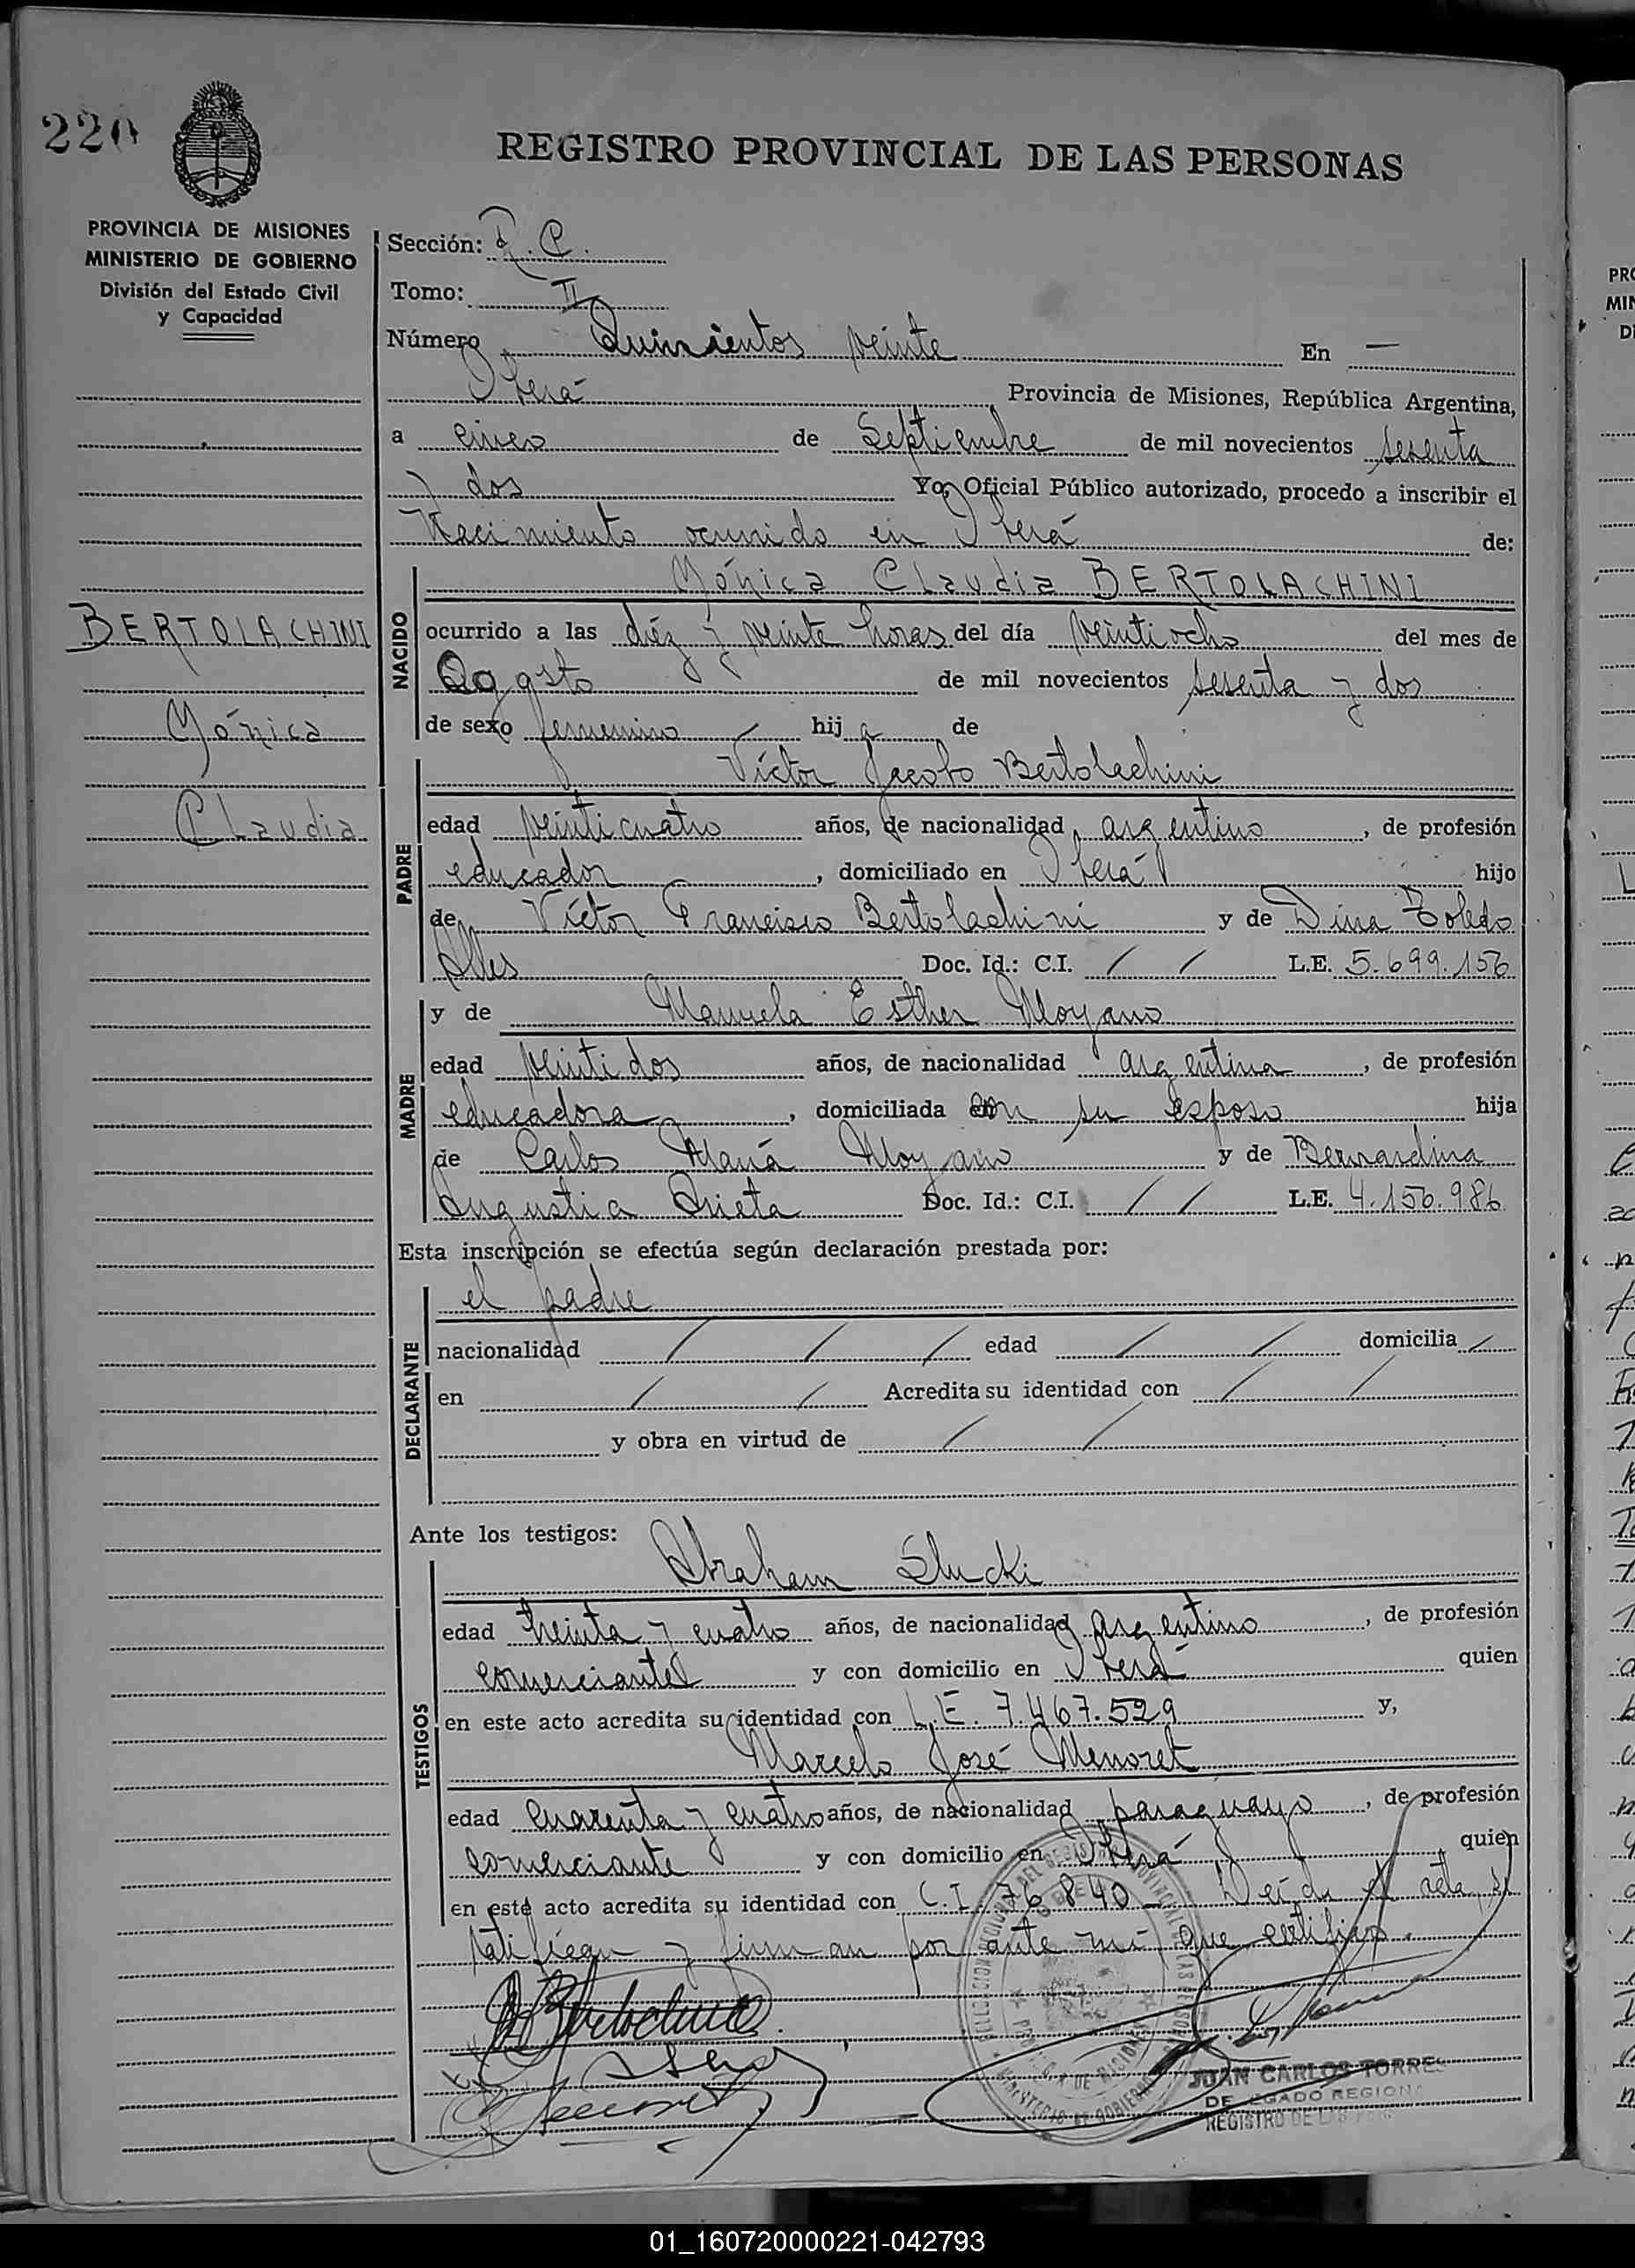 220
REGISTRO PROVINCIAL DE LAS PERSONAS
PROVINCIA DE MISIONES
MINISTERIO DE GOBIERNO
División del Estado Civil
y Capacidad
Sección:
Tomo: II
Número Quinientos veinte En —
Oberá Provincia de Misiones, República Argentina,
a cinco de Septiembre de mil novecientos sesenta
y dos Yo, Oficial Público autorizado, procedo a inscribir el
Nacimiento ocurrido en Oberá de:
NACIDO
Mónica Claudia BERTOLACHINI
BERTOLACHINI
Mónica
Claudia
ocurrido a las diéz y veinte horas del día veintiocho del mes de
Agosto de mil novecientos sesenta y dos
de sexo femenino hija de
PADRE
Víctor Jacobo Bertolachini
edad veinticuatro años, de nacionalidad argentino, de profesión
educador, domiciliado en Oberá hijo
de Víctor Francisco Bertolachini y de Dina Toledo
Doc. Id.: C.I. / / L.E. 5.699.156
MADRE
y de Manuela Esther Moyano
edad veintidos años, de nacionalidad argentina, de profesión
educadora, domiciliada con su esposo hija
de Carlos María Moyano y de Bernardina
Doc. Id.: C.I. / / L.E. 4.156.986
Esta inscripción se efectúa según declaración prestada por:
DECLARANTE
el padre
nacionalidad / / / edad / / domicilia /
en / / Acredita su identidad con / /
y obra en virtud de / /
Ante los testigos:
TESTIGOS
Abraham Slucki
edad treinta y cuatro años, de nacionalidad argentino, de profesión
comerciante y con domicilio en Oberá quien
en este acto acredita su identidad con L.E. 7.467.529 y,
Marcelo José Menoret
edad cuarenta y cuatro años, de nacionalidad paraguayo, de profesión
comerciante y con domicilio en Oberá quien
en este acto acredita su identidad con C.I. 76.840 Leída el acta,
ratifican y firman por ante mí que certifico.
JUAN CARLOS TORRES
DELEGADO REGIONAL
REGISTRO DE LAS
01_160720000221-042793